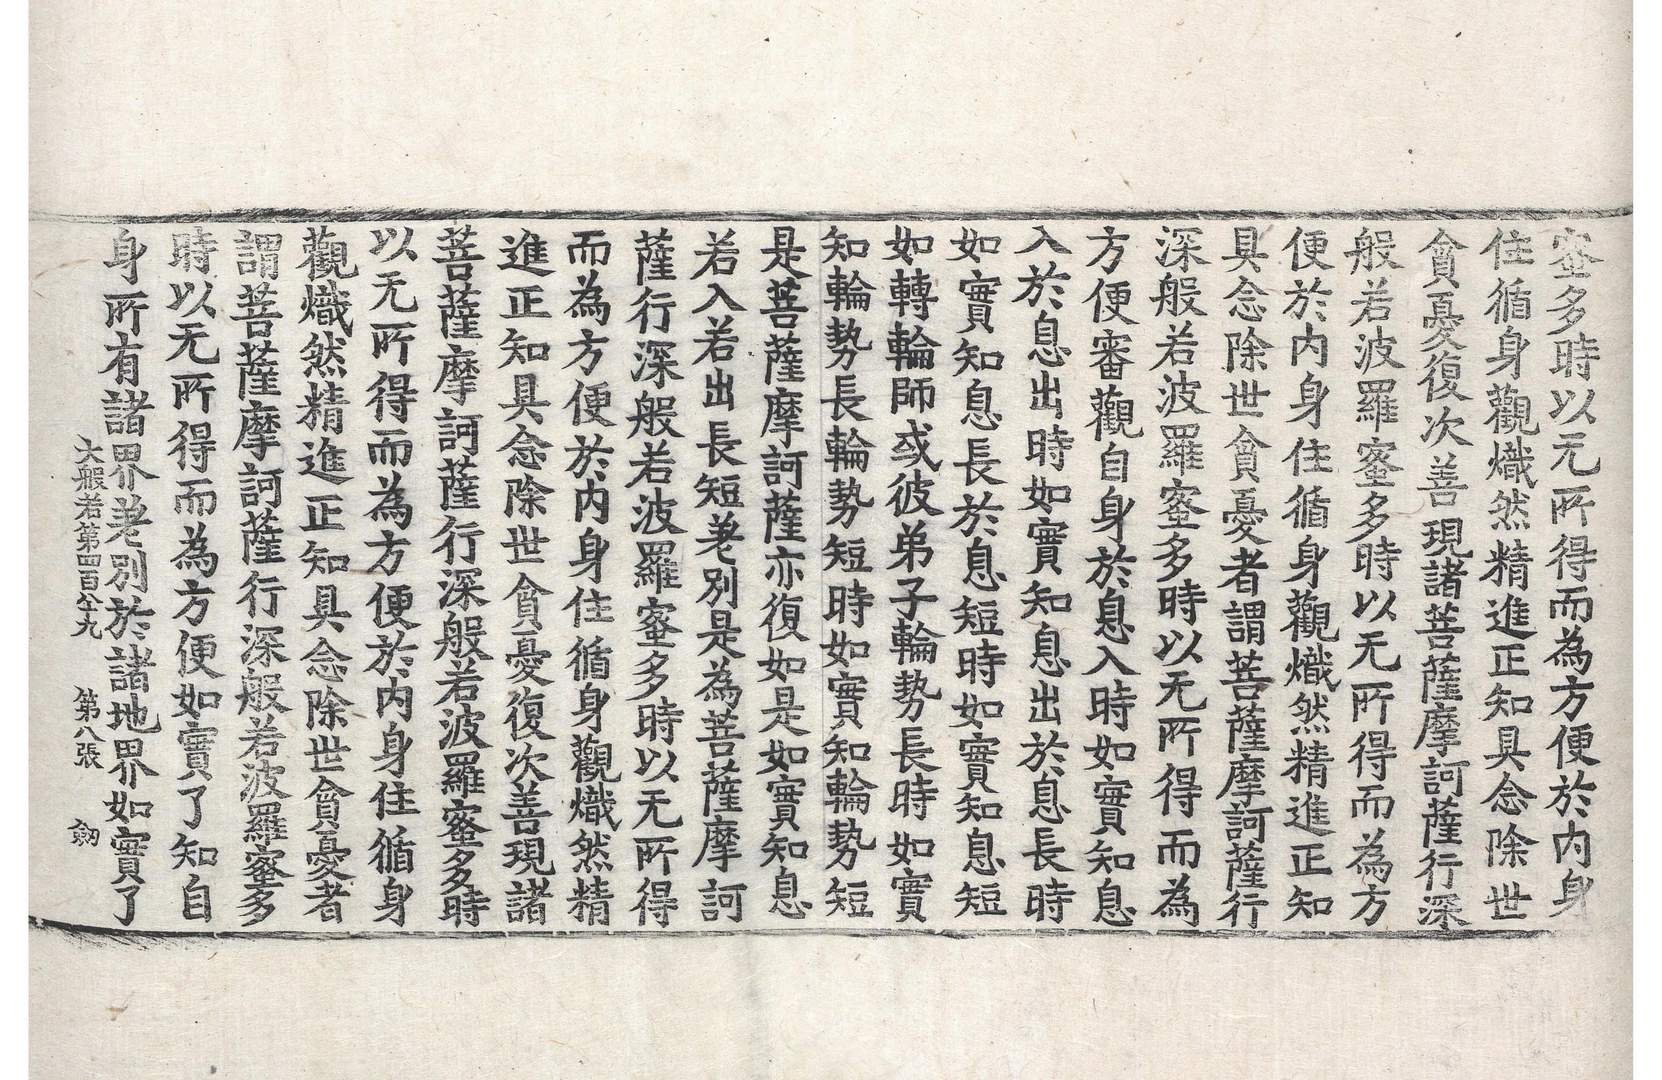 蜜多時以无所得而為方便於内身
住循身觀熾然精進正知具念除世
貪憂復次善現諸菩薩摩訶薩行深
般若波羅蜜多時以无所得而為方
便於内身住循身觀熾然精進正知
具念除世貪憂者謂菩薩摩訶薩行
深般若波羅蜜多時以无所得而為
方便審觀自身於息入時如實知息
入於息出時如實知息出於息長時
如實知息長於息短時如實知息短
如轉輪師或彼弟子輪勢長時如實
知輪勢長輪勢短時如實知輪勢短
是菩薩摩訶薩亦復如是如實知息
若入若出長短差別是為菩薩摩訶
薩行深般若波羅蜜多時以无所得
而為方便於内身住循身觀熾然精
進正知具念除世貪憂復次善現諸
菩薩摩訶薩行深般若波羅蜜多時
以无所得而為方便於内身住循身
觀熾然精進正知具念除世貪憂者
謂菩薩摩訶薩行深般若波羅蜜多
時以无所得而為方便如實了知自
身所有諸界差別於諸地界如實了
大般若第四百八十九 第八張 劒